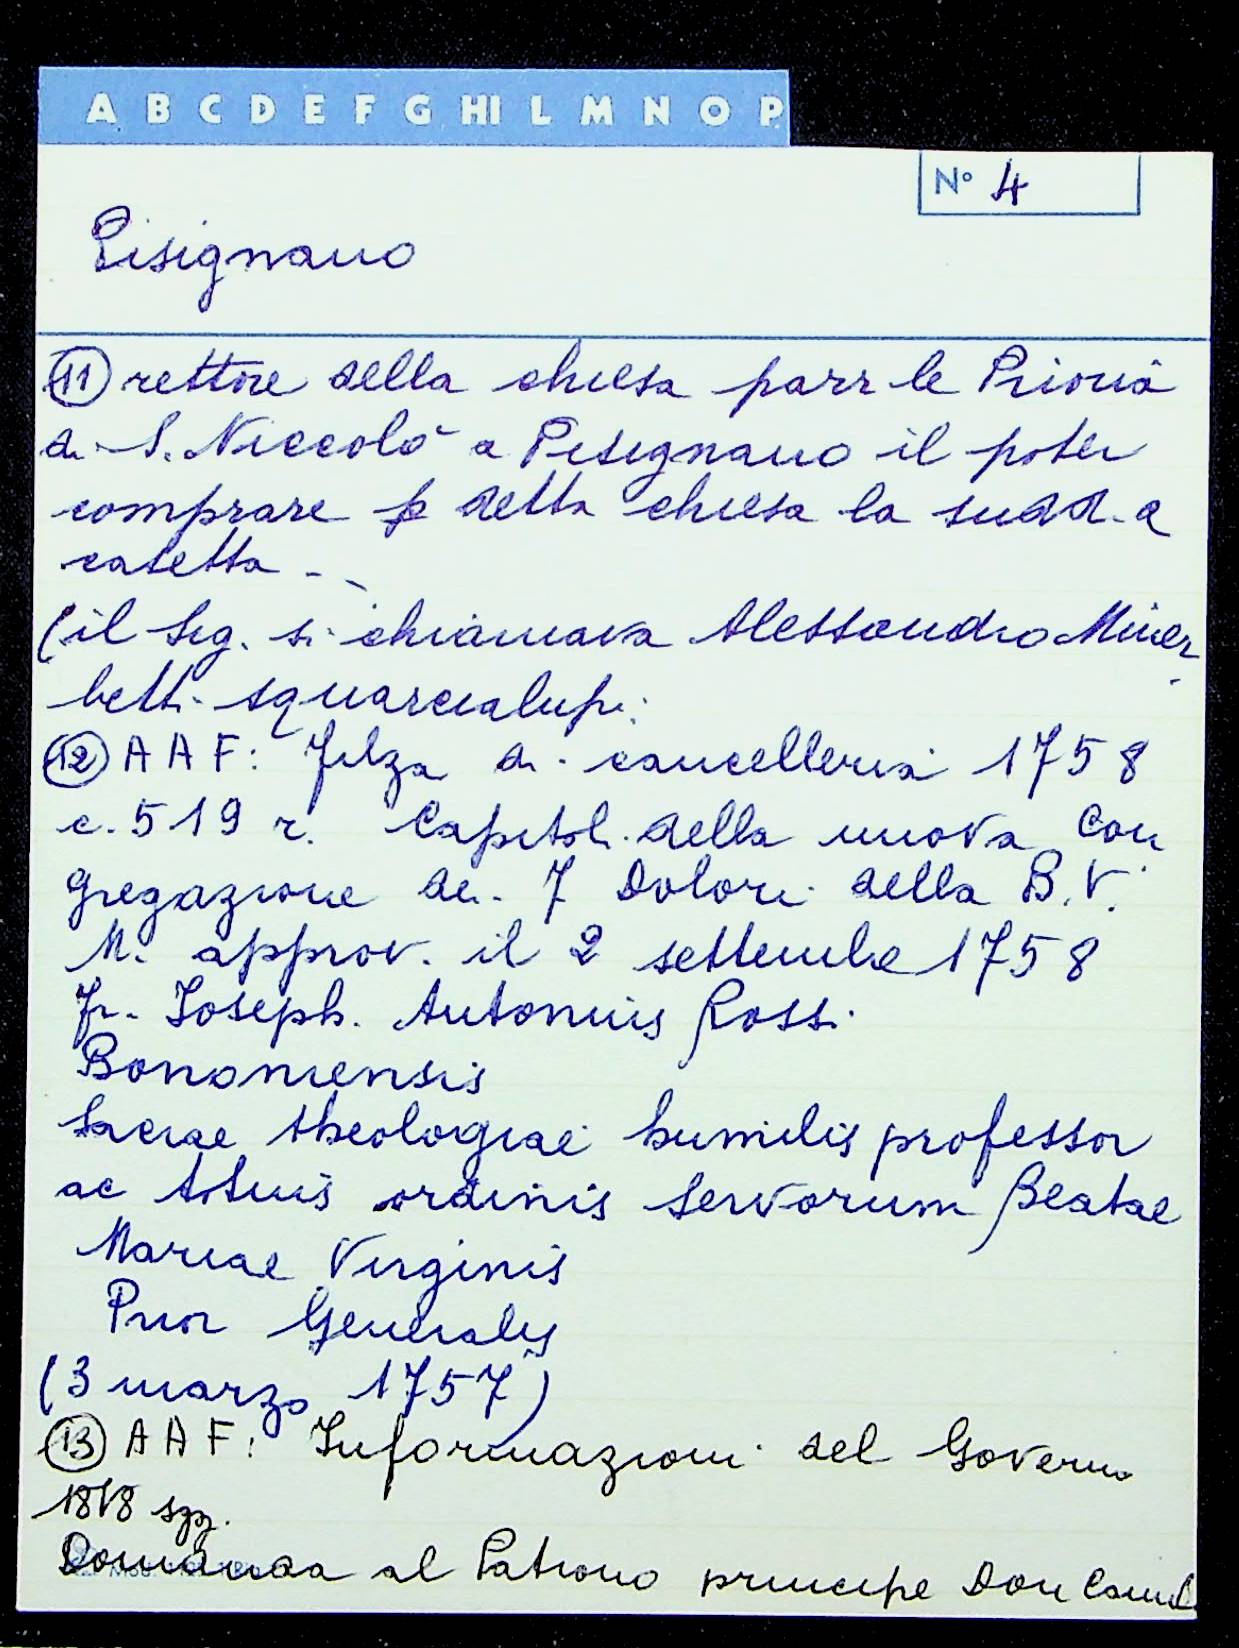 A B C D E F G HI L M N O P
N° 4
Pisignano
11 rettore della chiesa parr le Prioria
di S. Niccolò a Pisignano il poter
comprare p detta chiesa la sudd. a
casetta -
(il Sig. si chiamava Alessandro Miner
betti Squarcialupi.
12 A A F: Filza di cancelleria 1758
c. 519 r. Capitoli della nuova Con
gregazione dei 7 Dolori della B. V.
M. approv. il 2 settembre 1758
fr. Joseph. Antonius Rossi
Bononiensis
Sacrae theologiae humilis professor
ac totius ordinis Servorum Beatae
Mariae Virginis
Prior Generalis
(3 marzo 1757)
13 A A F: Informazioni del Governo
Domanda al Patrono principe Don Camil